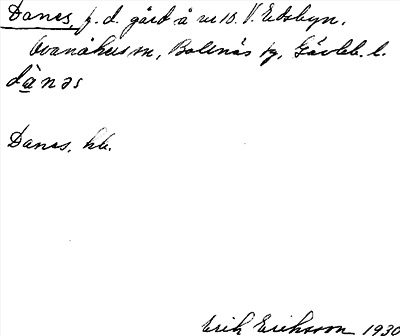 Danes, f. d. gård å nr 10. V. Edsbyn,
Ovanåkers sn, Bollnäs tg, Gävleb. l.
dànəs
Danes. hb.
Erik Eriksson 1930